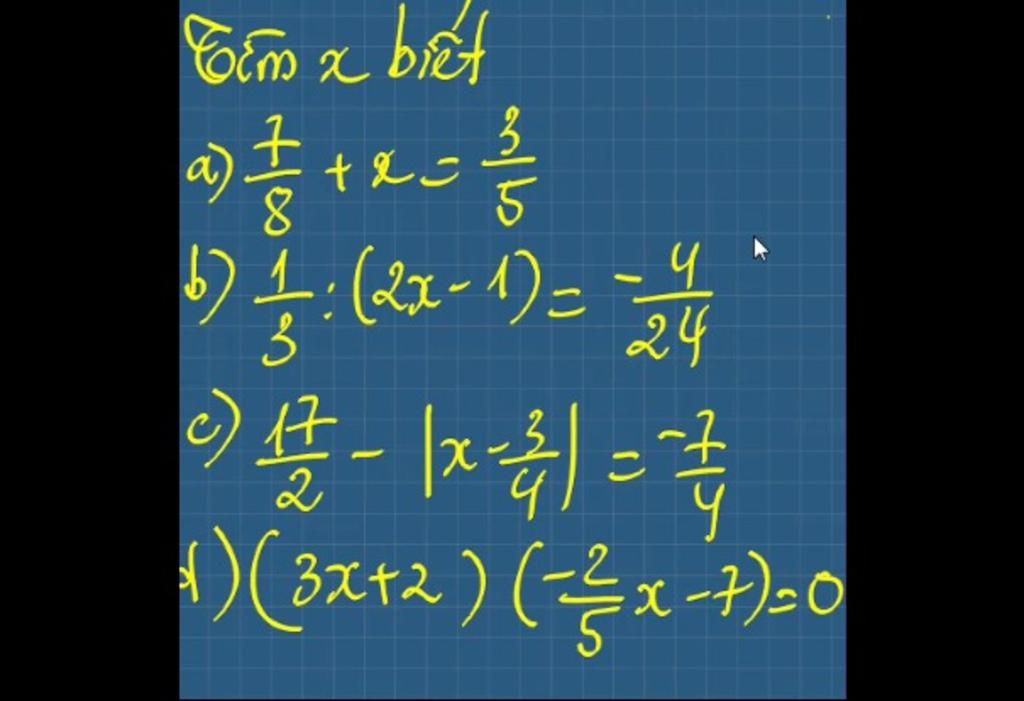 Tìm x biết
a) 7/8 + x = 3/5
b) 1/3 : (2x - 1) = -4/24
c) 17/2 - |x - 3/4| = -7/4
d) (3x + 2) (-2/5 x - 7) = 0